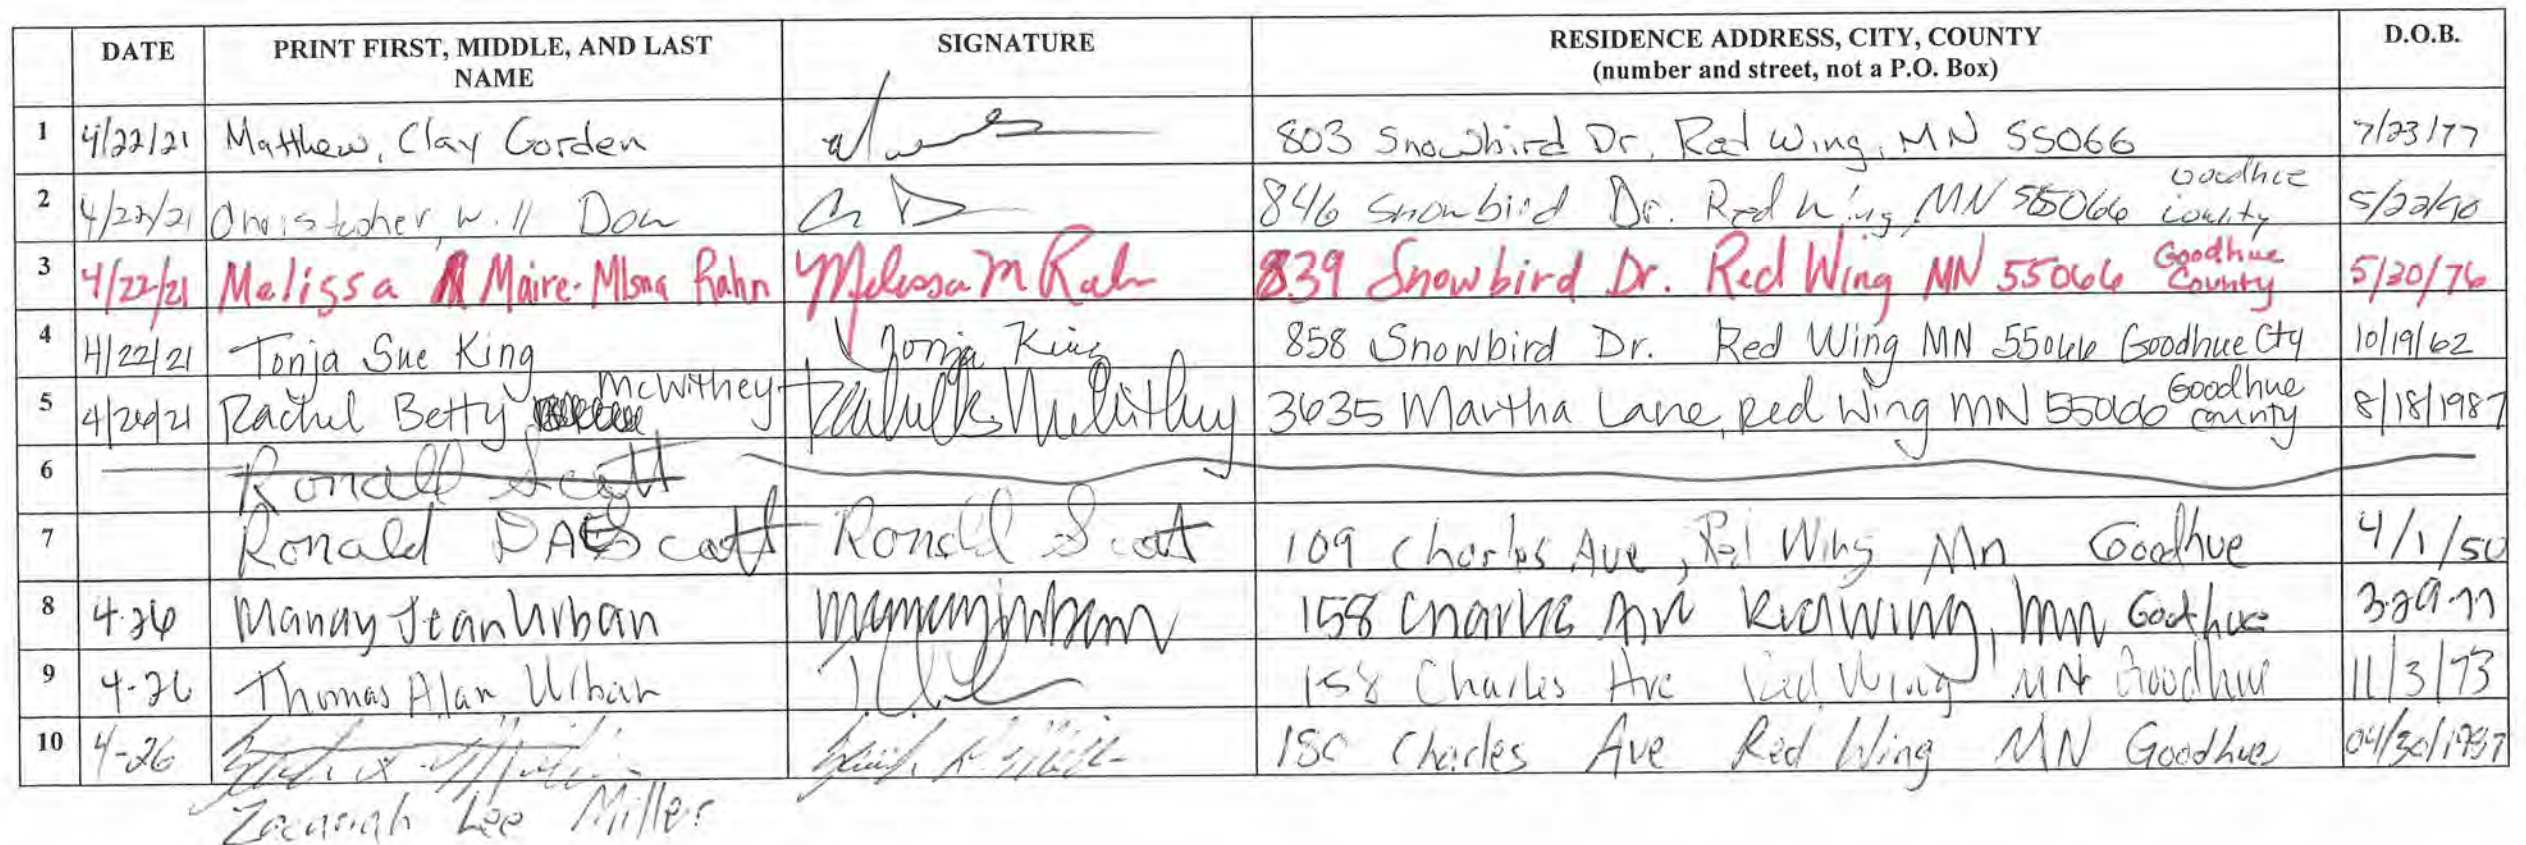 DATE PRINT FIRST, MIDDLE, AND LAST NAME SIGNATURE RESIDENCE ADDRESS, CITY, COUNTY (number and street, not a P.O. Box) D.O.B.
1 4/22/21 Matthew, Clay Gorden 803 Snowbird Dr, Red Wing, MN 55066 7/23/77
2 4/22/21 Christopher, Will Dow 846 Snowbird Dr. Red Wing, MN 55066 Goodhue county 5/22/90
3 4/22/21 Melissa Maire-Mlsna Rahn Melissa M Rahn 839 Snowbird Dr. Red Wing MN 55066 Goodhue County 5/30/76
4 4/22/21 Tonja Sue King Tonja King 858 Snowbird Dr. Red Wing MN 55066 Goodhue Cty 10/19/62
5 4/26/21 Rachel Betty McWithey 3635 Martha Lane, Red Wing MN 55066 Goodhue county 8/18/1987
6 Ronald Scott
7 Ronald Scott Ronald Scott 109 Charles Ave, Red Wing Mn Goodhue 4/1/50
8 4-26 Mandy Jean Urban 158 Charles Ave Red Wing, MN Goodhue 3-29-77
9 4-26 Thomas Alan Urban 158 Charles Ave Red Wing MN Goodhue 11/3/73
10 4-26 Charles Ave Red Wing MN Goodhue 04/30/1987
Zacariah Lee Miller